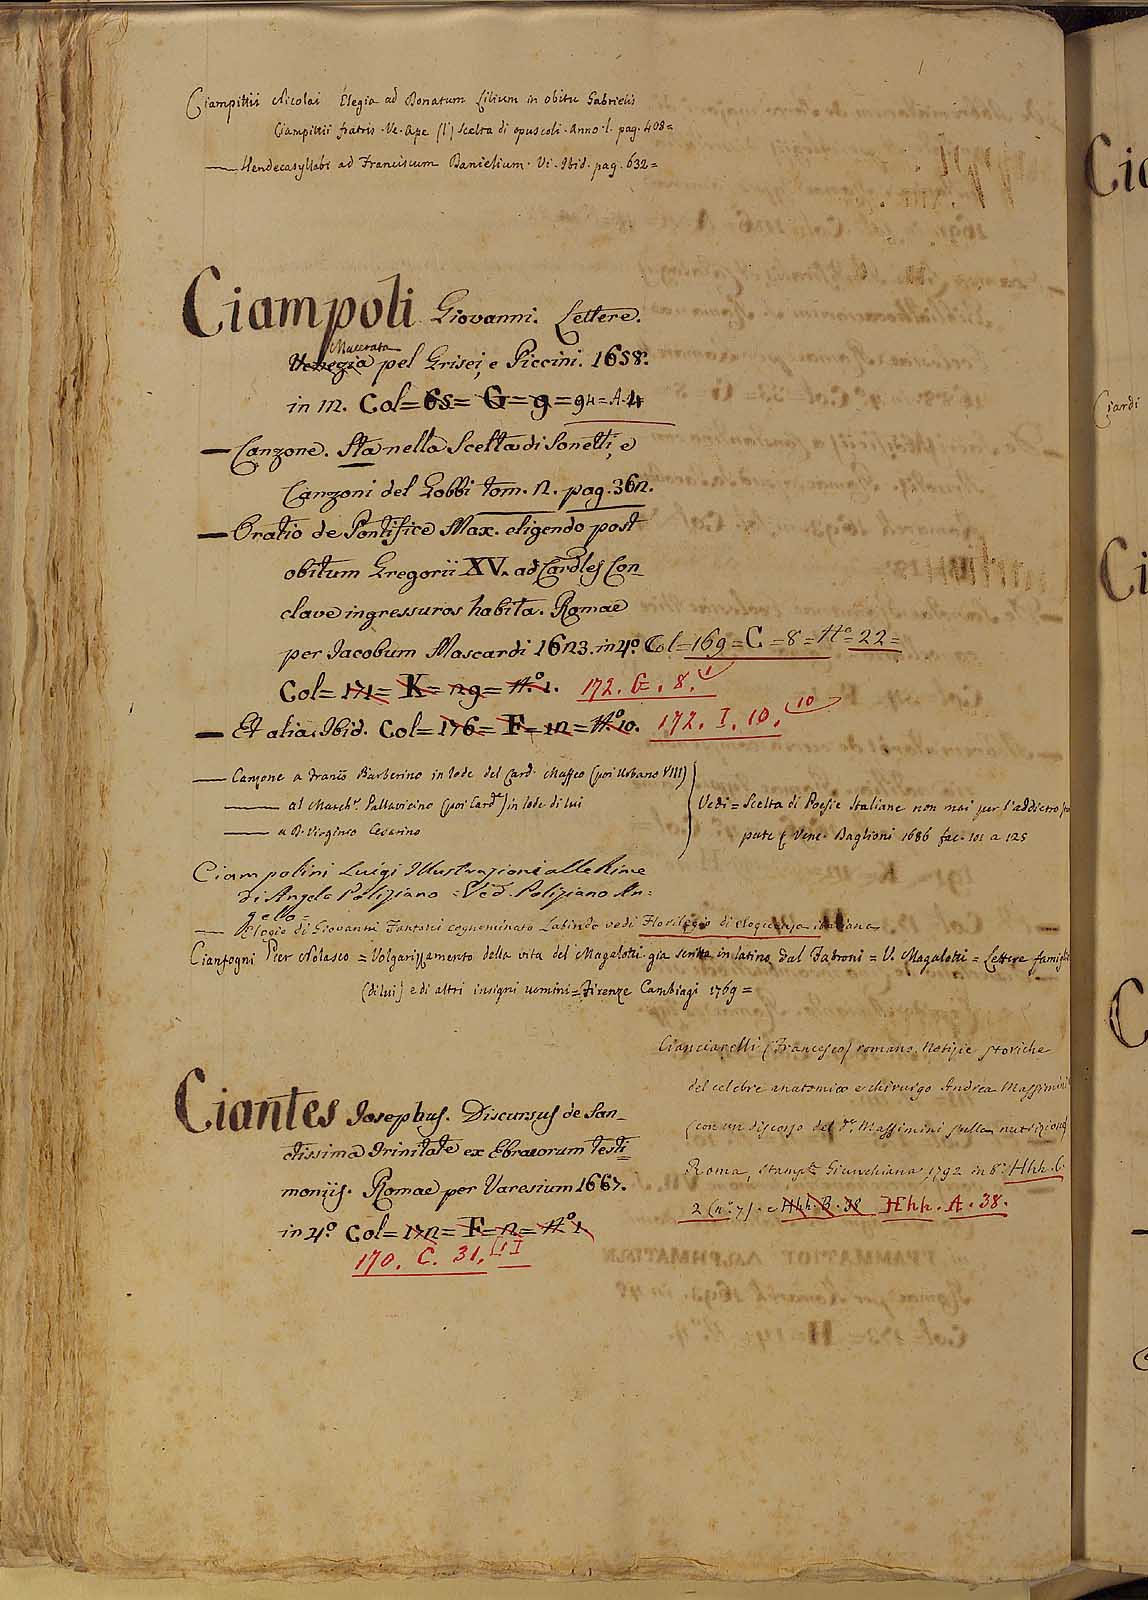 Ciampittii Nicolai Elegia ad Donatum Lilium in obitu Gabrielis
Ciampittii fratris. Ve. Ape (l') scelta di opuscoli. Anno I. pag. 408=
— Hendecasyllabi ad Franciscum Danielium. Vi. Ibid. pag. 632=
Ciampoli Giovanni. Lettere.
Macerata
Venezia pel Grisei, e Piccini. 1658.
in 12. Col= 65= G= 9= 94= A.4
— Canzone. Sta nella Scelta di Sonetti, e
Canzoni del Gobbi tom. 2. pag. 362.
— Oratio de Pontifice Max. eligendo post
obitum Gregorii XV. ad Cardles Con-
clave ingressuros habita. Romae
per Jacobum Mascardi 1623. in 4º. Col=169= C=8= Nº=22=
Col= 171= K= 29= Nº 1. 172. G. 8. 1
— Et alia. Ibid. Col= 176= F= 12= Nº 10. 172. I. 10. 10
— Canzone a Franco Barberino in lode del Card. Maffeo (poi Urbano VIII)
— al March. Pallavicino (poi Card.e) in lode di lui
— a D. Virginio Cesarino
Vedi= Scelta di Poesie Italiane non mai per l'addietro
pute Vene. Baglioni 1686 fac. 101 a 125
Ciampolini Luigi Illustrazioni alle Rime
di Angelo Poliziano = Ved. Poliziano An=
gelo=
— Elogio di Giovanni Fantoni cognominato Labindo vedi Florilegio di eloquenza italiana
Cianfogni Pier Nolasco = Volgarizzamento della vita del Magalotti già scritta in latino dal Fabroni = V. Magalotti = Lettere
(di lui) e di altri insigni uomini= Firenze Cambiagi 1769=
Cianciarelli (Francesco) romano. Notizie storiche
del celebre anatomico e chirurgo Andrea Massimini
(con un discorso del Dr. Massimini sulla nutrizione)
Roma, Stampe Giunchiana, 1792 in 8º. Hhh. C.
2 (nº. 7). e Hhh. B. 38 Hhh. A. 38.
Ciantes Josephus. Discursus de San-
ctissima Trinitate ex Ebraeorum testi=
moniis. Romae per Varesium 1667.
in 4º. Col= 172= F= 2= Nº 1
170. C. 31. 1
Ciardi